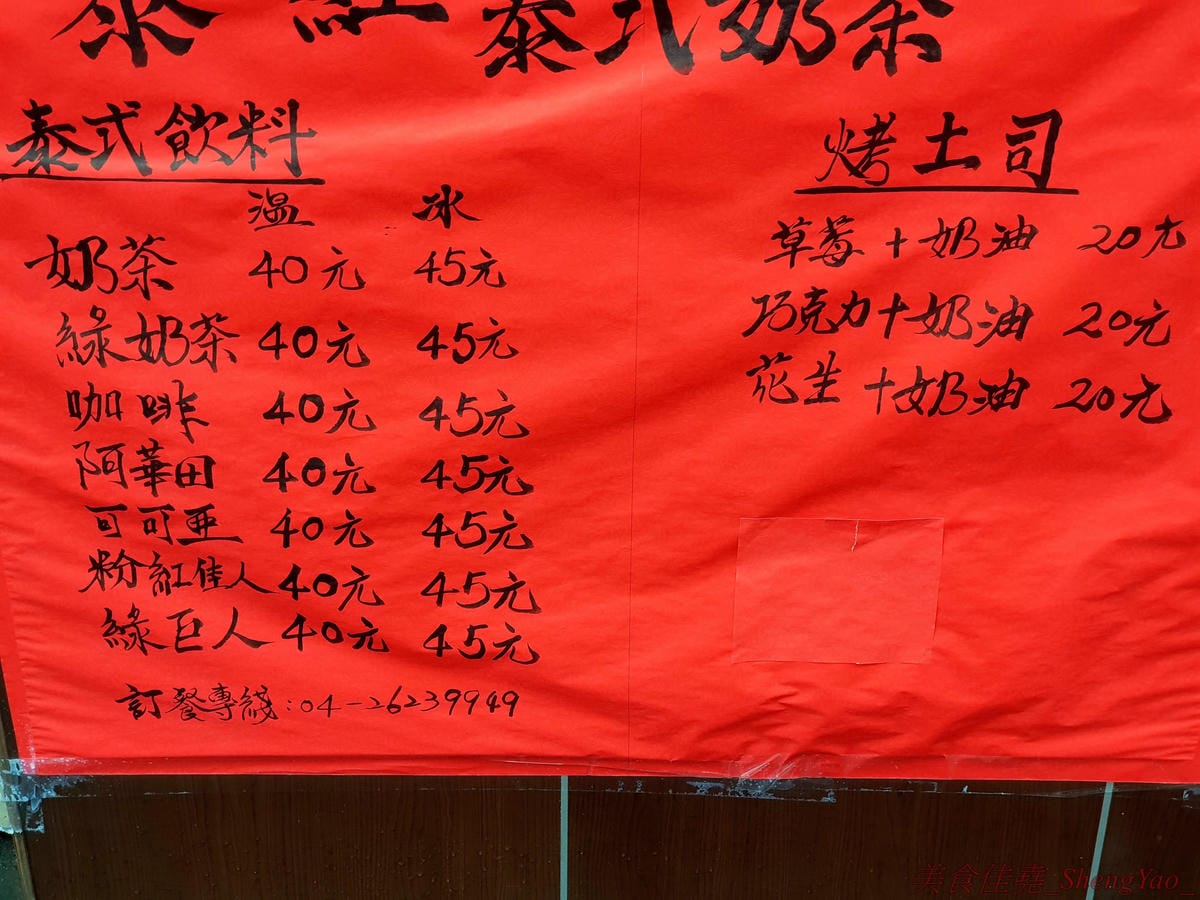 紅 泰式奶茶
泰式飲料
溫 冰
奶茶 40元 45元
綠奶茶 40元 45元
咖啡 40元 45元
阿華田 40元 45元
可可亜 40元 45元
粉紅佳人 40元 45元
綠巨人 40元 45元
訂餐專綫:04-26239949
烤土司
草莓+奶油 20元
巧克力+奶油 20元
花生+奶油 20元
美食佳堯_ShengYao_